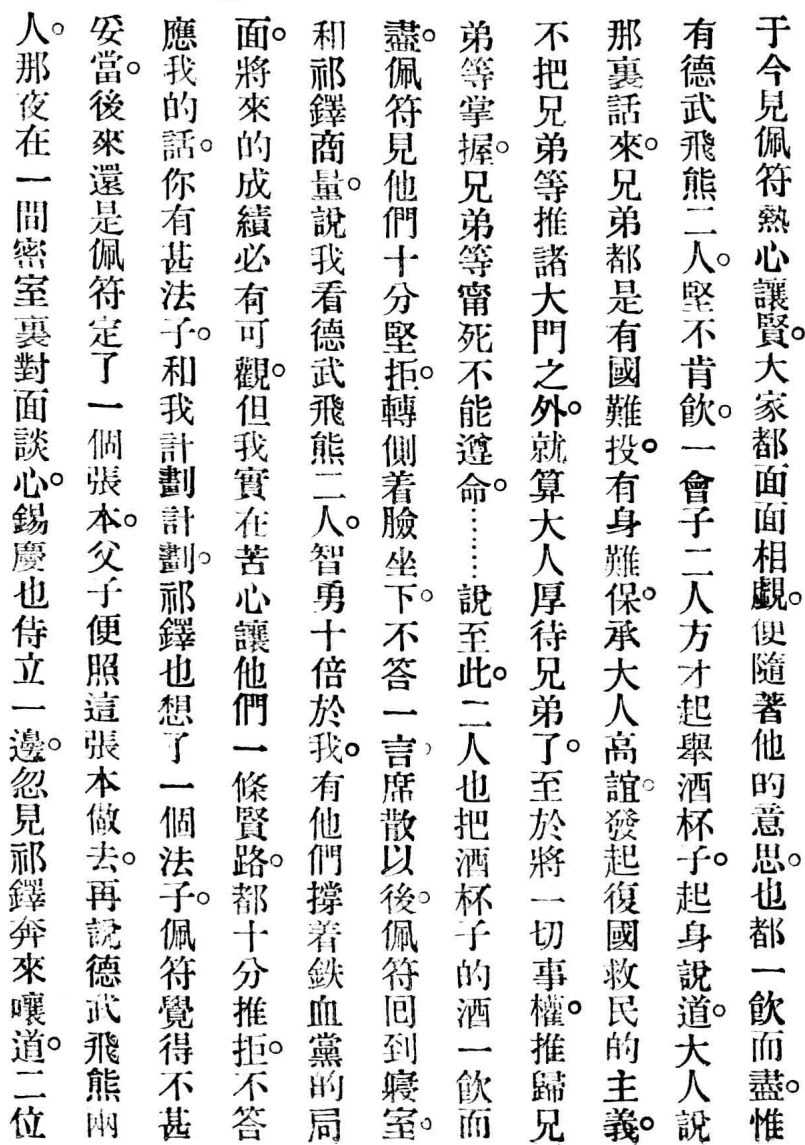 于今見佩符熱心讓賢。大家都面面相覷。便隨著他的意思。也都一飲而盡。惟
有德武飛熊二人。堅不肯飲。一會子二人方才起舉酒杯子。起身說道。大人說
那裏話來。兄弟都是有國難投。有身難保。承大人高誼。發起復國救民的主義。
不把兄弟等推諸大門之外。就算大人厚待兄弟了。至於將一切事權。推歸兄
弟等掌握。兄弟等甯死不能遵命。……說至此。二人也把酒杯子的酒一飲而
盡。佩符見他們十分堅拒。轉側着臉坐下。不答一言。席散以後。佩符回到寢室。
和祁鐸商量。說我看德武飛熊二人。智勇十倍於我。有他們撐着鉄血黨的局
面。將來的成績必有可觀。但我實在苦心讓他們一條賢路。都十分推拒。不答
應我的話。你有甚法子。和我計劃計劃。祁鐸也想了一個法子。佩符覺得不甚
妥當。後來還是佩符定了一個張本。父子便照這張本做去。再說德武飛熊兩
人。那夜在一間密室裏對面談心。錫慶也侍立一邊。忽見祁鐸奔來嚷道。二位